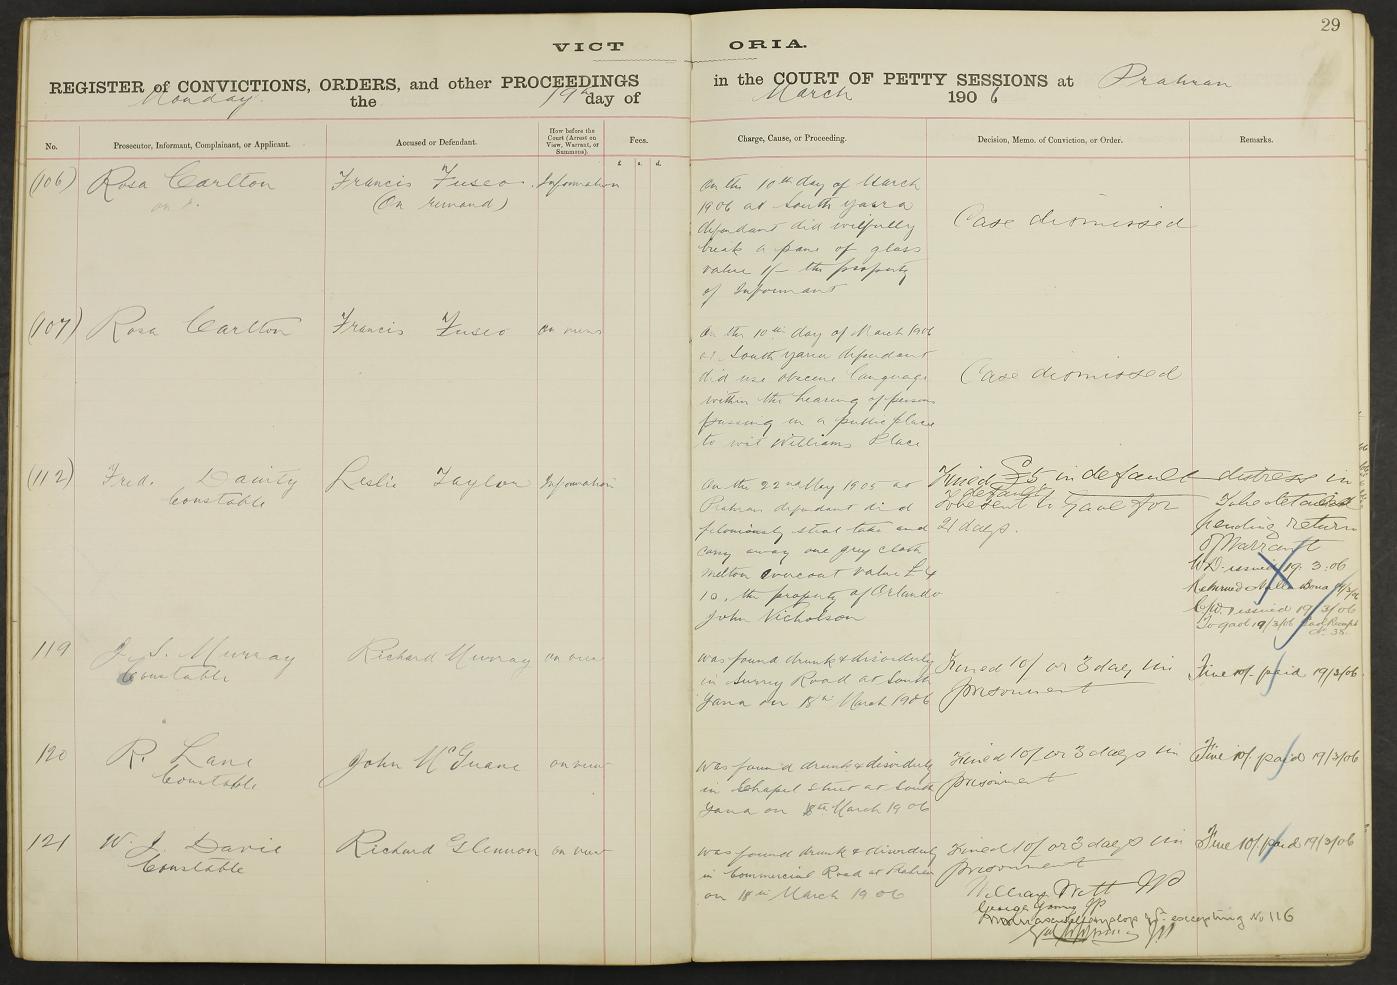 29
VICTORIA.
REGISTER of CONVICTIONS, ORDERS, and other PROCEEDINGS in the COURT OF PETTY SESSIONS at Prahran
Monday the 19th day of March 1906
No.
Prosecutor, Informant, Complainant, or Applicant.
Accused or Defendant.
How before the
Court (Arrest on
View, Warrant, or
Summons).
Fees.
£ s. d.
Charge, Cause, or Proceeding.
Decision, Memo. of Conviction, or Order.
Remarks.
(106)
Rosa Carlton
Francis Fusco
(On remand)
Information
On the 10th day of March
1906 at South Yarra
defendant did wilfully
break a pane of glass
value 1/- the property
of Informant
Case dismissed
(107)
Rosa Carlton
Francis Fusco
On the 10th day of March 1906
at South Yarra defendant
did use obscene language
within the hearing of persons
passing in a public place
to wit Williams Place
Case dismissed
(112)
Fred. Dainty
Constable
Leslie Taylor
Information
On the 22nd May 1905 at
Prahran defendant did
feloniously steal take and
carry away one grey cloth
melton overcoat value £4
10. the property of Orlando
John Nicholson
Fined £5 in default distress in
default
To be sent to Gaol for
21 days.
To be detained
pending return
of Warrant
W.D. issued 19.3.06
Returned Nulla Bona 19/3/06
issued 19/3/06
To gaol 19/3/06 Gaol Receipt
No. 38.
119
J. S. Murray
Constable
Richard Murray
on view
Was found drunk & disorderly
in Surrey Road at South
Yarra on 18th March 1906
Fined 10/- or 3 days im
prisonment
Fine 10/- paid 19/3/06
120
R. Lane
Constable
John McGuane
on view
Was found drunk & disorderly
in Chapel Street at South
Yarra on 18th March 1906
Fined 10/- or 3 days im
prisonment
Fine 10/- paid 19/3/06
121
W. J. Davie
Constable
Richard Glennon
on view
Was found drunk & disorderly
in Commercial Road at Prahran
on 18th March 1906
Fined 10/- or 3 days im
prisonment
Fine 10/- paid 19/3/06
William Witt JP
George Young JP
excepting No 116
JP